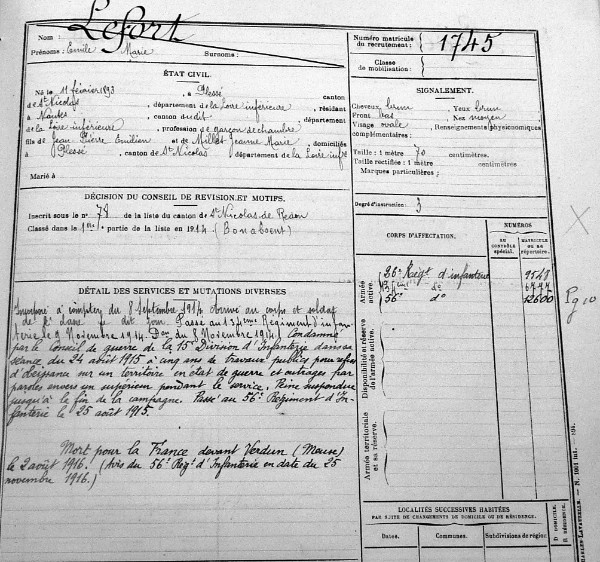 Nom : Lefort
Prénoms : Emile Marie Surnoms :
ÉTAT CIVIL.
Né le 11 février 1893, à Plessé canton
de St Nicolas, département de la Loire inférieure, résidant
à Nantes, canton dudit, département
de la Loire inférieure, profession de garçon de chambre
fils de Jean Pierre Emilien et de Millet Jeanne Marie, domiciliés
à Plessé, canton de St Nicolas, département de la Loire infre
Marié à
DÉCISION DU CONSEIL DE REVISION ET MOTIFS.
Inscrit sous le no 78 de la liste du canton de St Nicolas de Redon
Classé dans la 1re partie de la liste en 1914 (Bon absent)
DÉTAIL DES SERVICES ET MUTATIONS DIVERSES
Incorporé à compter du 8 Septembre 1914, arrivé au corps et soldat
de 2e classe le dit jour. Passé au 134eme Régiment d'infan
terie le 8 Novembre 1914. Don du 8 Novembre 1914. Condamné
par le Conseil de guerre de la 15e Division d'Infanterie dans sa
séance du 24 août 1915 à cinq ans de travaux publics pour refus
d'obéissance sur un territoire en état de guerre et outrages par
paroles envers un supérieur pendant le service. Peine suspendue
jusqu'à la fin de la campagne. Passé au 56e Régiment d'In-
fanterie le 25 août 1915.
Mort pour la France devant Verdun (Meuse)
le 2 août 1916. (Avis du 56e Régt d'Infanterie en date du 25
novembre 1916.)
Numéro matricule
du recrutement : 1745
Classe
de mobilisation :
SIGNALEMENT.
Cheveux brun Yeux brun
Front bas Nez moyen
Visage ovale Renseignements physionomiques
complémentaires :
Taille : 1 mètre 70 centimètres.
Taille rectifiée : 1 mètre centimètres
Marques particulières :
Degré d'instruction : 3
CORPS D'AFFECTATION.
NUMÉROS
AU CONTRÔLE spécial.
MATRICULE OU DE répertoire.
Armée active.
26e Régt d'infanterie 9549
134eme do 6777
56e do 12600
Disponibilité et réserve
de l'armée active.
Armée territoriale
et sa réserve.
LOCALITÉS SUCCESSIVES HABITÉES
PAR SUITE DE CHANGEMENTS DE DOMICILE OU DE RÉSIDENCE.
Dates. Communes. Subdivisions de région
D. DOMICILE.
R. RÉSIDENCE.
CHARLES-LAVAUZELLE.